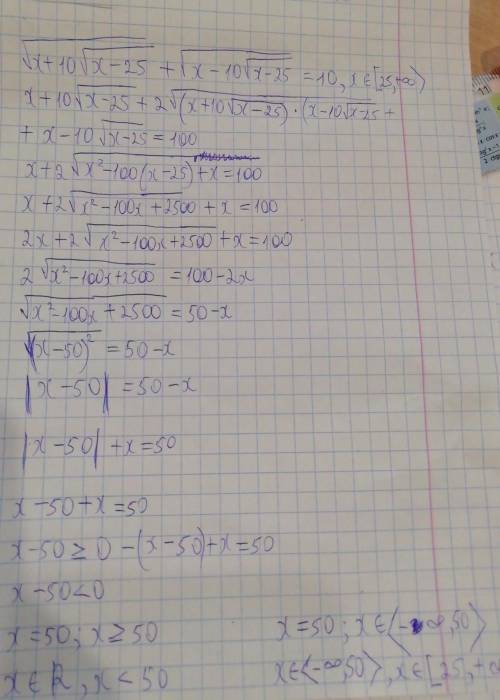 √(x+10√(x-25)) + √(x-10√(x-25)) = 10, x ∈ [25,+∞⟩
x+10√(x-25) + 2√((x+10√(x-25))·(x-10√(x-25) +
+ x-10√(x-25) = 100
x+2√(x²-100(x-25)) + x = 100
x+2√(x²-100x+2500) + x = 100
2x+2√(x²-100x+2500) + x = 100
2√(x²-100x+2500) = 100-2x
√(x²-100x+2500) = 50-x
√((x-50)²) = 50-x
|x-50| = 50-x
|x-50| + x = 50
x-50+x = 50
x-50 ≥ 0 -(x-50)+x = 50
x-50 < 0
x = 50; x ≥ 50 x = 50; x ∈ ⟨-∞,50⟩
x ∈ R, x < 50 x ∈ ⟨-∞,50⟩, x ∈ [25,+∞